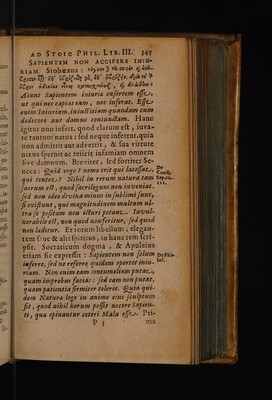 AD STOIC PHIL. LIB. III. 345
SAPIENTEM NON ACCIPERE INIU-
RIAM. Stobæus:
Aiunt Sapientem iniuria exsortem esse,
ut qui nec capiat eam, nec inferat. Esse
enim Iniuriam, iniustitiam quandam cum
dedecore aut damno coniunctam. Hanc
igitur non infert, quod clarum est, iuua-
re tantum natus: sed neque infertur, quia
non admittit aut advertit, & sua virtute
nixus spernit ac reiicit infamiam omnem
siue damnum. Breviter, sed fortiter Se-
neca: Quid ergo? nemo erit qui lacessat,
qui tentet? Nihil in rerum natura tam
sacrum est, quod sacrilegum non inveniat.
sed non ideo divina minus in sublimi sunt,
si exsistunt, qui magnitudinem multum ul-
tra se positam non icturi petant. Invul-
nerabile est, non quod non feritur, sed quod
non læditur. Et totum libellum, elegan-
tem sane & alti spiritus, in hanc rem scri-
psit. Socraticum dogma, & Apuleius
etiam sic expressit: Sapientem non solum
inferre, sed ne referre quidem oportet iniu-
riam. Non enim eam contumeliam putat,
quam improbus faciat: sed eam non putat,
quam patientia firmiter toleret. Quia qui-
dem Naturæ lege in animo eius sculptum
sit, quod nihil horum possit nocere Sapien-
ti, qua opinantur ceteri Mala esse. Pri-
P 5 ma
De
Const.
Sap. ca.
III.